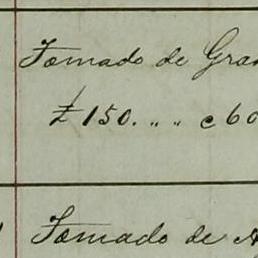 Tomado de Gra
£150. „ „ c 60
Tomado de A